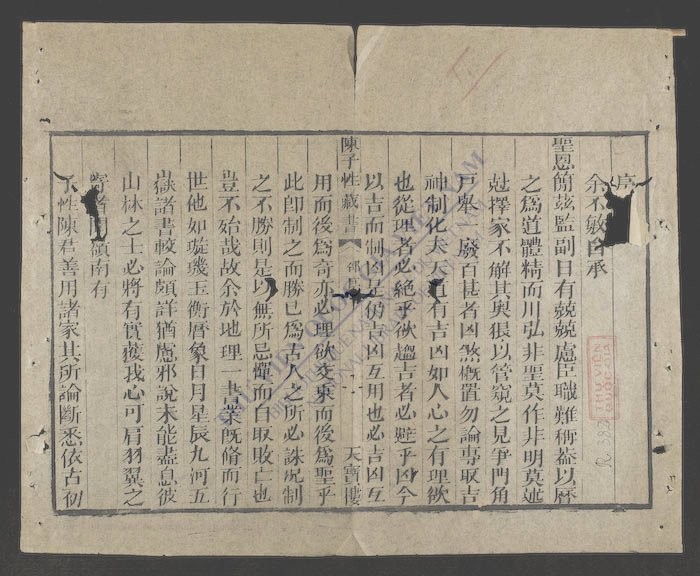 序
余不敏自承
聖恩簡茲監副日有兢兢慮臣職難稱蓋以曆
之為道體精而用弘非聖莫作非明莫述
尅擇家不解其奧狠以管窺之見爭門角
戶舉一廢百甚者凶煞概置勿論專取吉
神制化夫天道有吉凶如人心之有理欲
也從理者必絶乎欲趨吉者必避乎凶今
以吉而制凶是仍吉凶互用也必吉凶互
陳子性藏書
天寶樓
用而後為奇亦必理欲交乘而後為聖乎
此即制之而勝已為古人之所必誅况制
之不勝則是以無所忌憚而自取敗亡也
豈不殆哉故余於地理一書業既脩而行
世他如璇璣玉衡曆象日月星辰九河五
嶽諸書較論頗詳猶慮邪說未能盡息彼
山林之士必將有實獲我心可肩羽翼之
寄者聞嶺南有
子性陳君善用諸家其所論斷悉依古初
THƯ VIỆN
QUỐC GIA